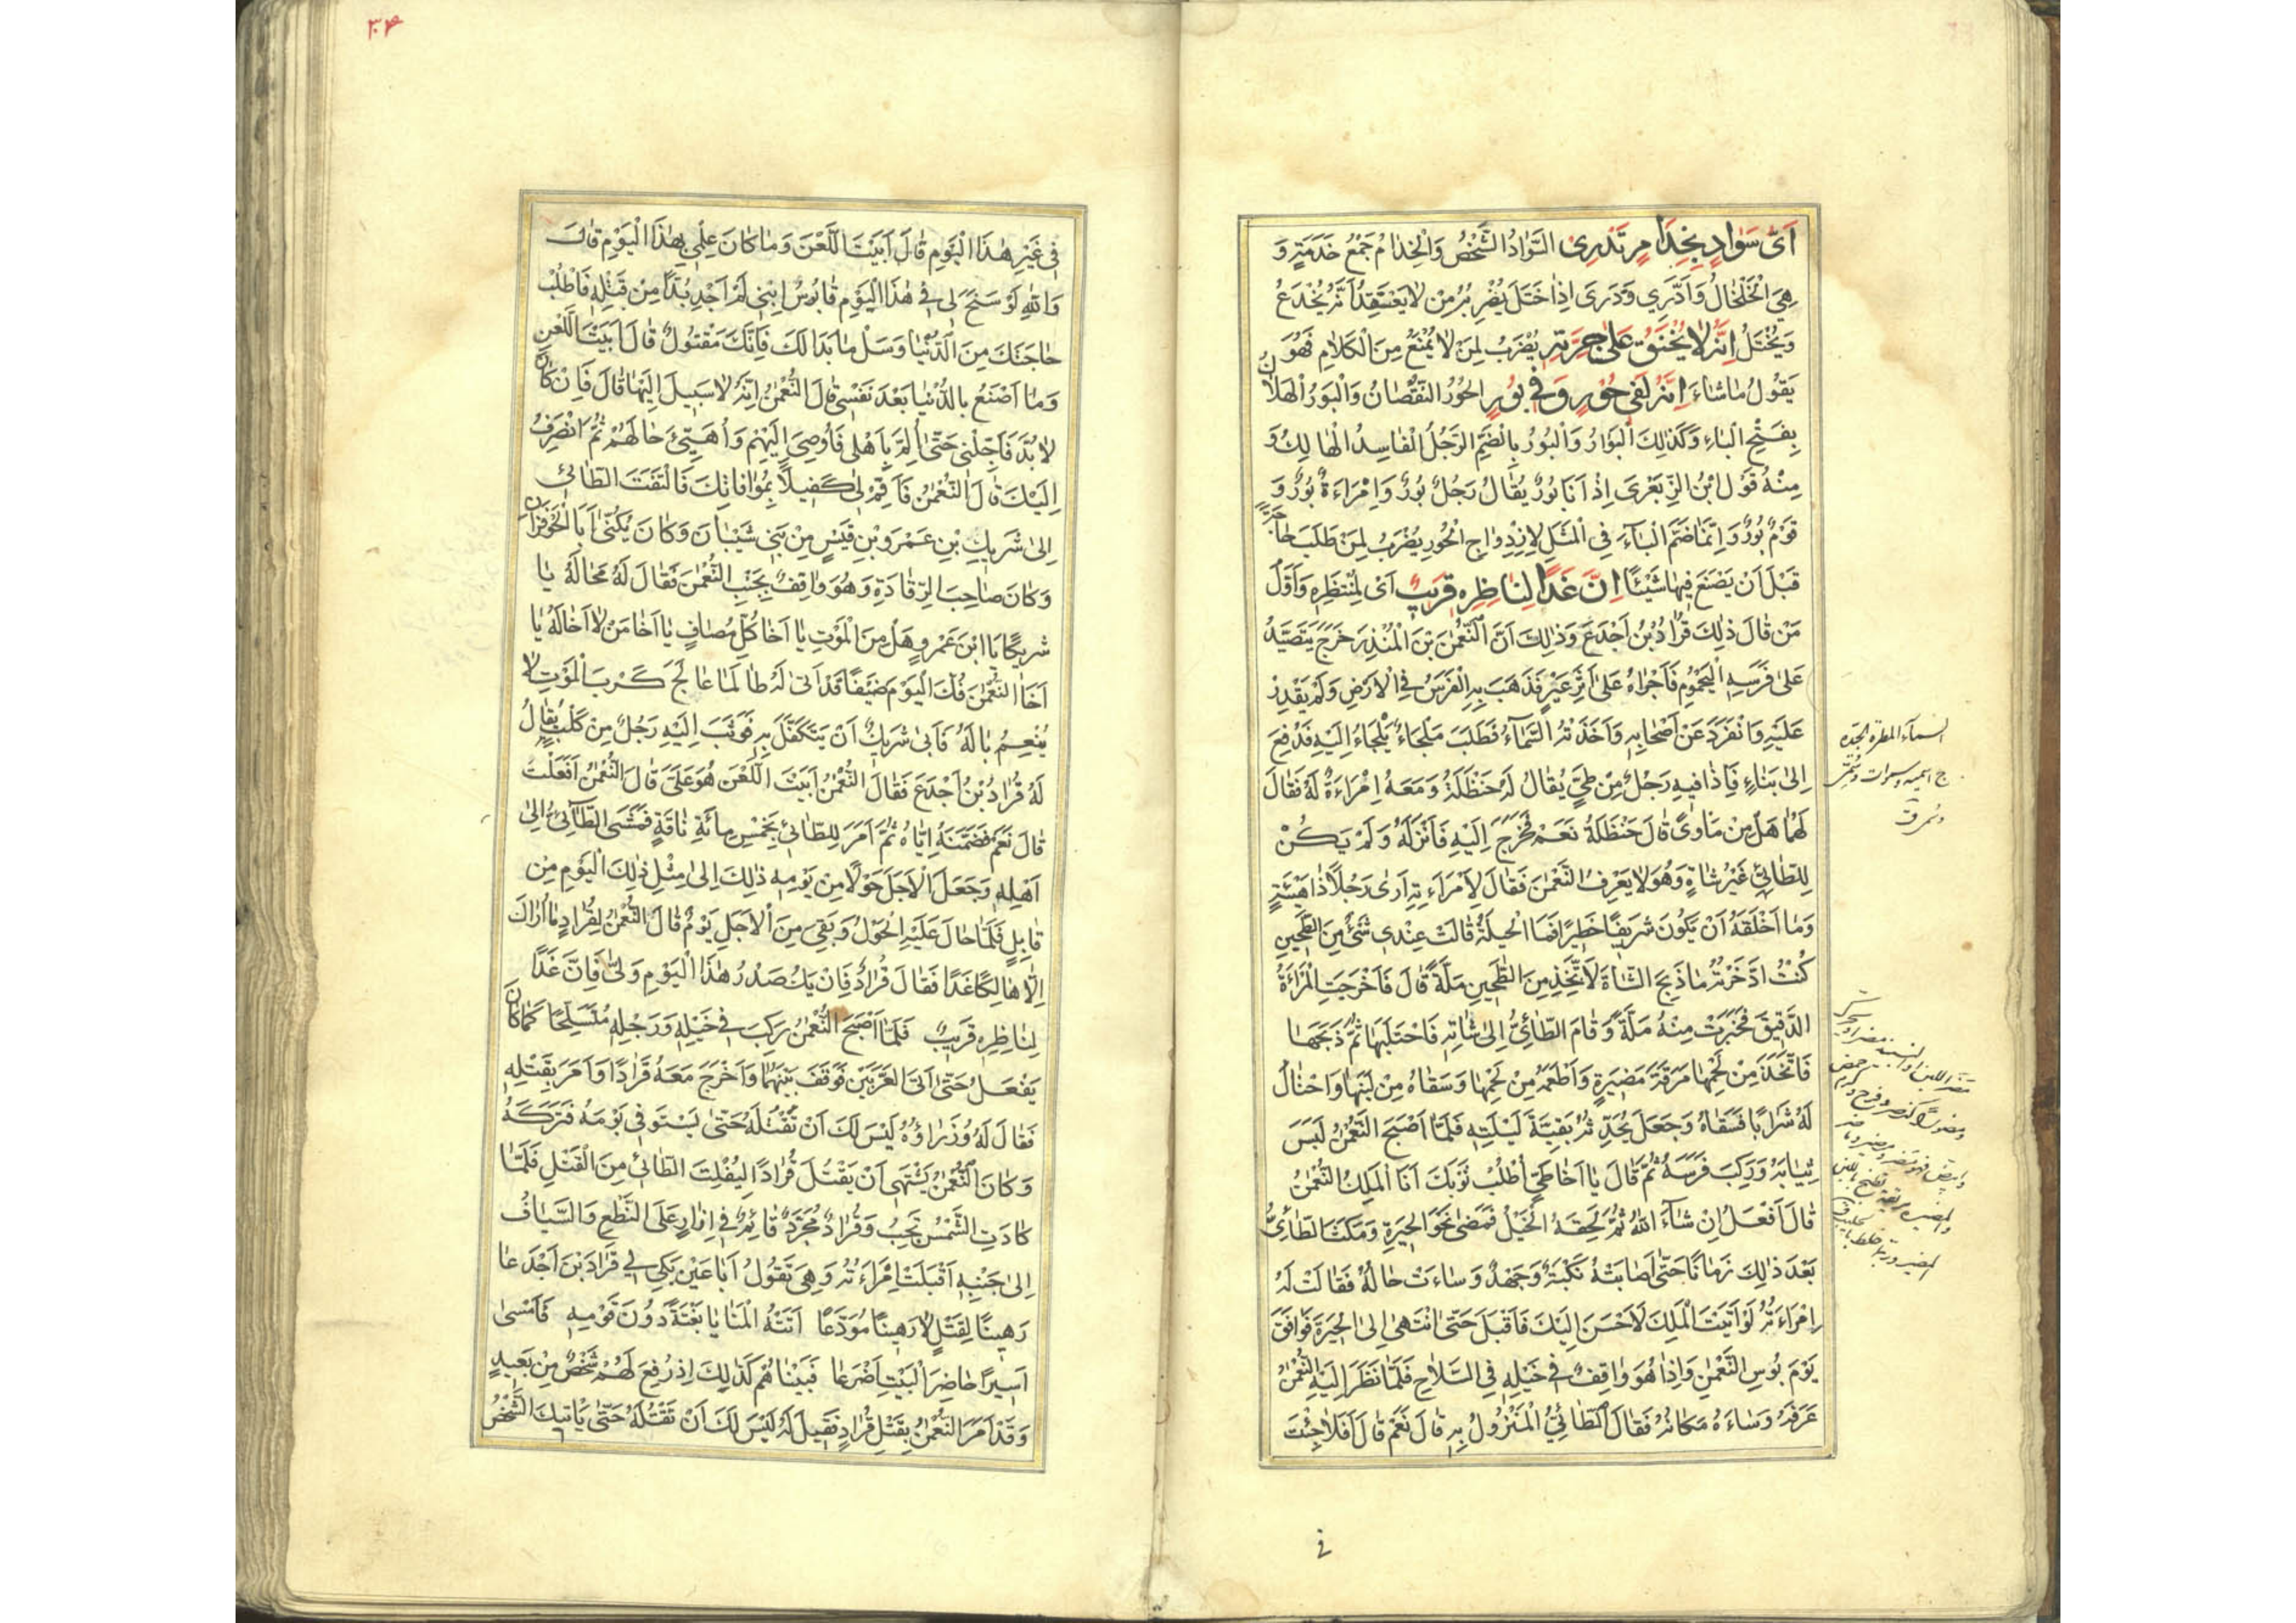 اَىُّ سَوٰادٍ بِخِدٰامٍ تَدْرِى السَّوٰادُ الشَّخْصُ وَالْخِدٰامُ جَمْعُ خَدَمَةٍ وَ
هِيَ الْخَلْخٰالُ وَاَدْرِي وَدَرَى اِذٰا خَتَلَ يُضْرِبُ لِمَنْ لٰا يَعْتَقِدُ اَنَّهُ يُخْدَعُ
وَيُخْتَلُ اِنَّهُ لٰا يُخْنَقُ عَلىٰ جِرَّتِهِ يُضْرَبُ لِمَنْ لٰا يُمْنَعُ مِنَ الْكَلٰامِ فَهُوَ
يَقُولُ مٰا شٰاءَ اِنَّهُ لَفِي حُوْرٍ وَفِي بُوْرٍ الحُوْرُ النُّقْصٰانُ وَالْبَوْرُ الْهَلٰاكُ
بِفَتْحِ الْبٰاءِ وَكَذٰلِكَ الْبَوٰارُ وَالْبُورُ بِالضَّمِّ الرَّجُلُ الْفٰاسِدُ الْهٰالِكُ وَ
مِنْهُ قَوْلُ ابْنُ الزِّبَعْرَى اِذْ اَنَا بُورٌ يُقٰالُ رَجُلٌ بُورٌ وَاِمْرَاَةٌ بُورٌ وَ
قَوْمٌ بُورٌ وَاِنَّمٰا ضَمَّ الْبٰآءَ فِي الْمَثَلِ لِازْدِوٰاجِ الْحُورِ يُضْرَبُ لِمَنْ طَلَبَ حٰاجَةً
قَبْلَ اَنْ يَصْنَعَ فِيهٰا شَيْئًا اِنَّ غَدًا لِنٰاظِرِهِ قَرِيْبٌ اَىْ لِمُنْتَظِرِهِ وَاَوَّلُ
مَنْ قٰالَ ذٰلِكَ قُرٰادُ بْنُ اَجْدَعَ وَذٰلِكَ اَنَّ النُّعْمٰنَ بْنَ الْمُنْذِرِ خَرَجَ يَتَصَيَّدُ
عَلىٰ فَرَسِهِ الْيَحْمُومِ فَاَجْرٰاهُ عَلىٰ اَثَرِ عَيْرٍ فَذَهَبَ بِهِ الْفَرَسُ فِي الْاَرْضِ وَلَمْ يَقْدِرْ
عَلَيْهِ وَانْفَرَدَ عَنْ اَصْحٰابِهِ وَاَخَذَتْهُ السَّمٰآءُ فَطَلَبَ مَلْجَاءً يَلْجَاءُ اِلَيْهِ فَدُفِعَ
اِلىٰ بِنٰاءٍ فَاِذٰا فِيهِ رَجُلٌ مِنْ طَيٍّ يُقٰالُ لَهُ حَنْظَلَةُ وَمَعَهُ اِمْرَاَةٌ لَهُ فَقٰالَ
لَهُمٰا هَلْ مِنْ مَاْوًى قٰالَ حَنْظَلَةُ نَعَمْ فَخَرَجَ اِلَيْهِ فَاَنْزَلَهُ وَلَمْ يَكُنْ
لِلطّٰائِيِّ غَيْرُ شٰاةٍ وَهُوَ لٰا يَعْرِفُ النُّعْمٰنَ فَقٰالَ لِامْرَاَتِهِ اَرىٰ رَجُلًا ذٰا هَيْئَةٍ
وَمٰا اَخْلَقَهُ اَنْ يَكُونَ شَرِيفًا خَطِيرًا فَمَا الْحِيلَةُ قٰالَتْ عِنْدِي شَىْءٌ مِنَ الطَّحِينِ
كُنْتُ ادَّخَرْتُهُ فَاذْبَحِ الشّٰاةَ لِاَتَّخِذَ مِنَ الطَّحِينِ مَلَّةً قٰالَ فَاَخْرَجَتِ الْمَرْاَةُ
الدَّقِيقَ فَخَبَزَتْ مِنْهُ مَلَّةً وَقٰامَ الطّٰائِيُّ اِلىٰ شٰاتِهِ فَاحْتَلَبَهٰا ثُمَّ ذَبَحَهٰا
فَاتَّخَذَ مِنْ لَحْمِهٰا مَرَقَةً مَضِيرَةً وَاَطْعَمَهُ مِنْ لَحْمِهٰا وَسَقٰاهُ مِنْ لَبَنِهٰا وَاحْتٰالَ
لَهُ شَرٰابًا فَسَقٰاهُ وَجَعَلَ يُحَدِّثُهُ بَقِيَّةَ لَيْلَتِهِ فَلَمّٰا اَصْبَحَ النُّعْمٰنُ لَبِسَ
ثِيٰابَهُ وَرَكِبَ فَرَسَهُ ثُمَّ قٰالَ يٰا اَخٰا طَيٍّ اُطْلُبْ ثَوٰابَكَ اَنَا الْمَلِكُ النُّعْمٰنُ
قٰالَ اَفْعَلُ اِنْ شٰآءَ اللّٰهُ ثُمَّ لَحِقَهُ الْخَيْلُ فَمَضىٰ نَحْوَ الْحِيرَةِ وَمَكَثَ الطّٰائِيُّ
بَعْدَ ذٰلِكَ زَمٰانًا حَتّٰى اَصٰابَتْهُ نَكْبَةٌ وَجَهْدٌ وَسٰاءَتْ حٰالُهُ فَقٰالَتْ لَهُ
اِمْرَاَتُهُ لَوْ اَتَيْتَ الْمَلِكَ لَاَحْسَنَ اِلَيْكَ فَاَقْبَلَ حَتّٰى انْتَهىٰ اِلَى الْحِيرَةِ فَوٰافَقَ
يَوْمَ بُوْسِ النُّعْمٰنِ وَاِذٰا هُوَ وٰاقِفٌ فِي خَيْلِهِ فِي السَّلٰاحِ فَلَمّٰا نَظَرَ اِلَيْهِ النُّعْمٰنُ
عَرَفَهُ وَسٰاءَهُ مَكٰانُهُ فَقٰالَ الطّٰائِيُّ الْمَنْزُولُ بِهِ قٰالَ نَعَمْ قٰالَ اَفَلٰا جِئْتَ
السماء المطرة الجيدة
فى
٣٤
فِي غَيْرِ هٰذَا الْيَوْمِ قٰالَ اَبَيْتَ اللَّعْنَ وَمٰا كٰانَ عِلْمِي بِهٰذَا الْيَوْمِ قٰالَ
وَاللّٰهِ لَوْ سَنَحَ لِي فِي هٰذَا الْيَوْمِ قٰابُوسُ ابْنِي لَمْ اَجِدْ بُدًّا مِنْ قَتْلِهِ فَاطْلُبْ
حٰاجَتَكَ مِنَ الدُّنْيٰا وَسَلْ مٰا بَدٰا لَكَ فَاِنَّكَ مَقْتُولٌ قٰالَ اَبَيْتَ اللَّعْنَ
وَمٰا اَصْنَعُ بِالدُّنْيٰا بَعْدَ نَفْسِي قٰالَ النُّعْمٰنُ اِنَّهُ لٰا سَبِيلَ اِلَيْهٰا قٰالَ فَاِنْ كٰانَ
لٰا بُدَّ فَاَجِّلْنِي حَتّٰى اُلِمَّ بِاَهْلِي فَاُوصِيَ اِلَيْهِمْ وَاُهَيِّئَ حٰالَهُمْ ثُمَّ انْصَرِفُ
اِلَيْكَ قٰالَ النُّعْمٰنُ فَاَقِمْ لِي كَفِيلًا بِمُوٰافٰاتِكَ فَالْتَفَتَ الطّٰائِيُّ
اِلىٰ شَرِيكِ بْنِ عَمْرِو بْنِ قَيْسٍ مِنْ بَنِي شَيْبٰانَ وَكٰانَ يُكَنّٰى اَبَا الْحَوْفَزٰانِ
وَكٰانَ صٰاحِبَ الرِّقٰادَةِ وَهُوَ وٰاقِفٌ بِجَنْبِ النُّعْمٰنِ فَقٰالَ لَهُ مَحٰالَهُ يٰا
شَرِيكًا يَا ابْنَ عَمْرٍو هَلْ مِنَ الْمَوْتِ يٰا اَخٰا كُلِّ مُصٰافٍ يٰا اَخٰا مَنْ لٰا اَخٰا لَهُ يٰا
اَخَا النُّعْمٰنِ فُكَّ الْيَوْمَ ضَيْفًا قَدْ اَتىٰ لَهُ طٰالَمٰا عٰالَجَ كَرْبَ الْمَوْتِ لٰا
يُنْعِمُ بٰالَهُ فَاَبىٰ شَرِيكٌ اَنْ يَتَكَفَّلَ بِهِ فَوَثَبَ اِلَيْهِ رَجُلٌ مِنْ كَلْبٍ يُقٰالُ
لَهُ قُرٰادُ بْنُ اَجْدَعَ فَقٰالَ النُّعْمٰنُ اَبَيْتَ اللَّعْنَ هُوَ عَلَيَّ قٰالَ النُّعْمٰنُ اَفَعَلْتَ
قٰالَ نَعَمْ فَضَمَّنَهُ اِيّٰاهُ ثُمَّ اَمَرَ لِلطّٰائِيِّ بِخَمْسِ مِائَةِ نٰاقَةٍ فَمَشَى الطّٰائِيُّ اِلىٰ
اَهْلِهِ وَجَعَلَ الْاَجَلَ حَوْلًا مِنْ يَوْمِهِ ذٰلِكَ اِلىٰ مِثْلِ ذٰلِكَ الْيَوْمِ مِنْ
قٰابِلٍ فَلَمّٰا حٰالَ عَلَيْهِ الْحَوْلُ وَبَقِيَ مِنَ الْاَجَلِ يَوْمٌ قٰالَ النُّعْمٰنُ لِقُرٰادٍ مٰا اَرٰاكَ
اِلّٰا هٰالِكًا غَدًا فَقٰالَ قُرٰادٌ فَاِنْ يَكُ صَدْرُ هٰذَا الْيَوْمِ وَلّٰى فَاِنَّ غَدًا
لِنٰاظِرِهِ قَرِيبٌ فَلَمّٰا اَصْبَحَ النُّعْمٰنُ رَكِبَ فِي خَيْلِهِ وَرَجِلِهِ مُتَسَلِّحًا كَمٰا كٰانَ
يَفْعَلُ حَتّٰى اَتَى الْغَرِيَّيْنِ فَوَقَفَ بَيْنَهُمٰا وَاَخْرَجَ مَعَهُ قُرٰادًا وَاَمَرَ بِقَتْلِهِ
فَقٰالَ لَهُ وُزَرٰاؤُهُ لَيْسَ لَكَ اَنْ تَقْتُلَهُ حَتّٰى يَسْتَوْفِي يَوْمَهُ فَتَرَكَهُ
وَكٰانَ النُّعْمٰنُ يَشْتَهِي اَنْ يَقْتُلَ قُرٰادًا لِيُفْلِتَ الطّٰائِيُّ مِنَ الْقَتْلِ فَلَمّٰا
كٰادَتِ الشَّمْسُ تَجِبُ وَقُرٰادٌ مُجَرَّدٌ قٰائِمٌ فِي اِزٰارٍ عَلَى النَّطْعِ وَالسَّيّٰافُ
اِلىٰ جَنْبِهِ اَقْبَلَتْ اِمْرَاَتُهُ وَهِيَ تَقُولُ اَيٰا عَيْنِ بَكِّي لِي قُرٰادَ بْنَ اَجْدَعٰا
رَهِينًا لِقَتْلٍ لٰا رَهِينًا مُوَدَّعًا اَتَتْهُ الْمَنٰايٰا بَغْتَةً دُونَ قَوْمِهِ فَاَمْسىٰ
اَسِيرًا حٰاضِرَ الْبَيْتِ اَضْرَعٰا فَبَيْنٰا هُمْ كَذٰلِكَ اِذْ رُفِعَ لَهُمْ شَخْصٌ مِنْ بَعِيدٍ
وَقَدْ اَمَرَ النُّعْمٰنُ بِقَتْلِ قُرٰادٍ فَقِيلَ لَهُ لَيْسَ لَكَ اَنْ تَقْتُلَهُ حَتّٰى يَاْتِيكَ الشَّخْصُ